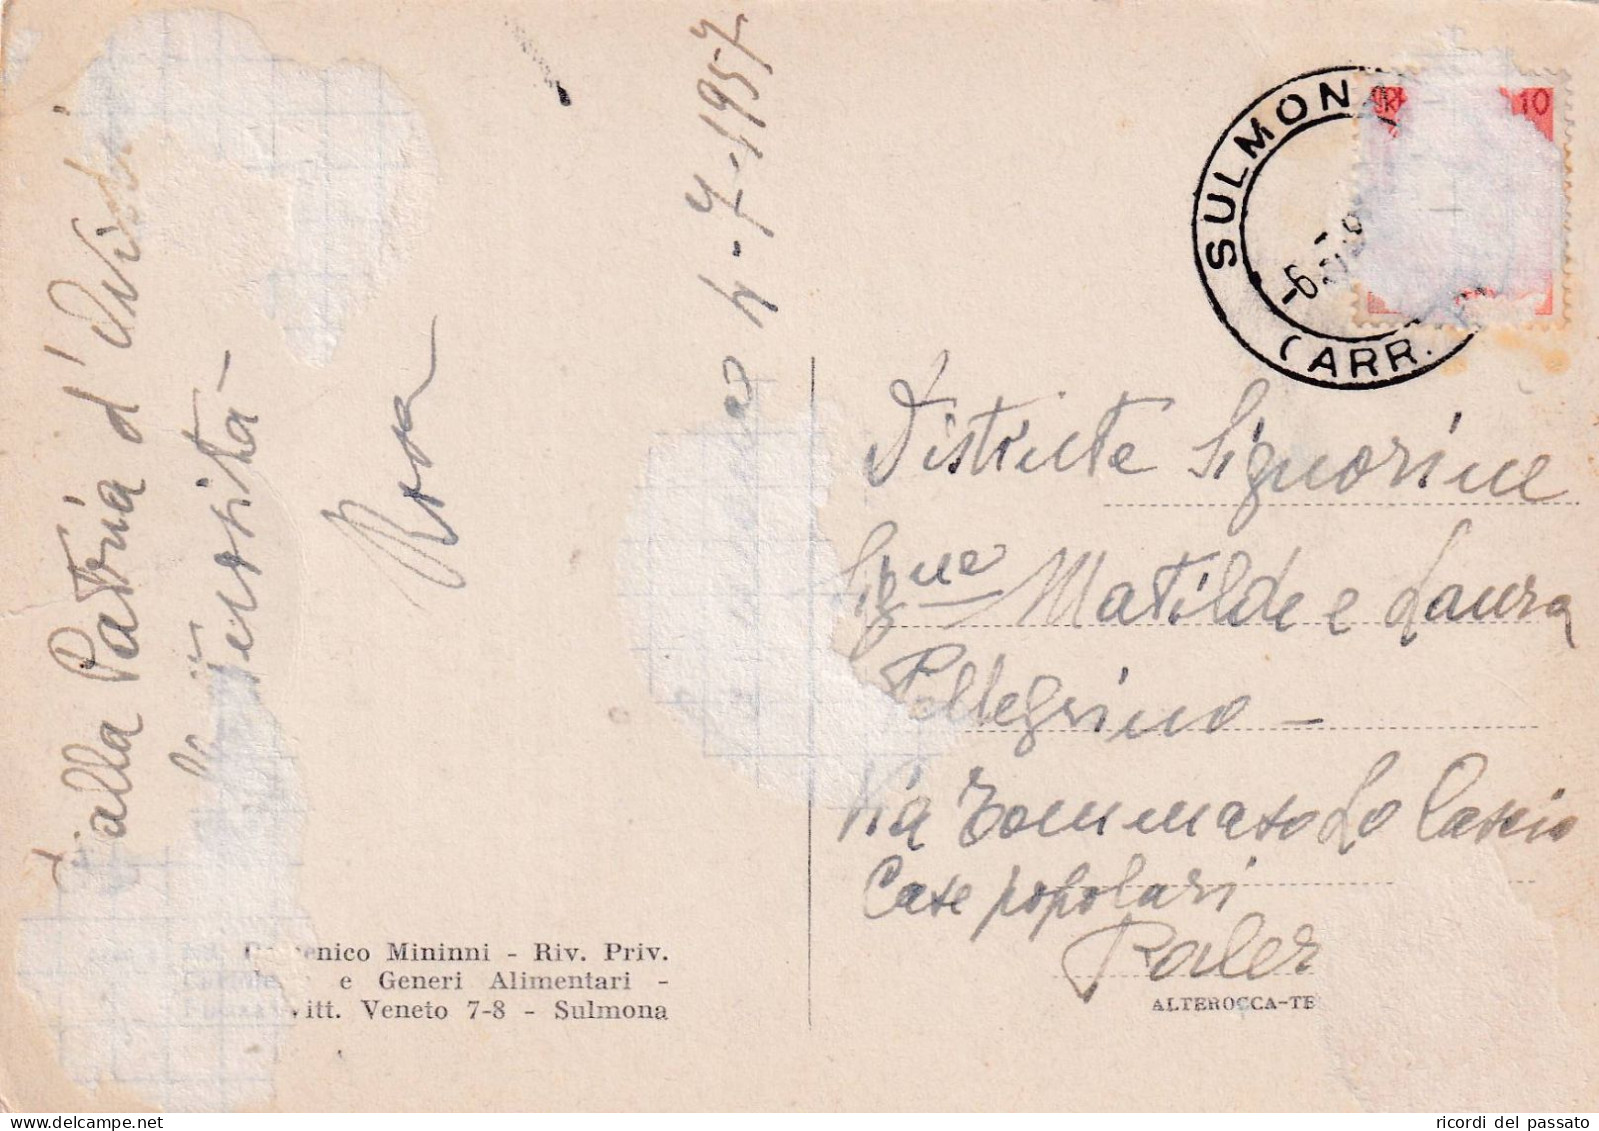 Dalla Patria d'Ovidio
Rosa
4-7-1957
SULMONA
(ARR.
10
Distinte Signorine
Sig.ne Matilde e Laura
Pellegrino -
Via Tommaso Lo Cascio
Case popolari
Paler
Domenico Mininni - Riv. Priv.
e Generi Alimentari -
Vitt. Veneto 7-8 - Sulmona
ALTEROCCA-TE
ricordi del passato